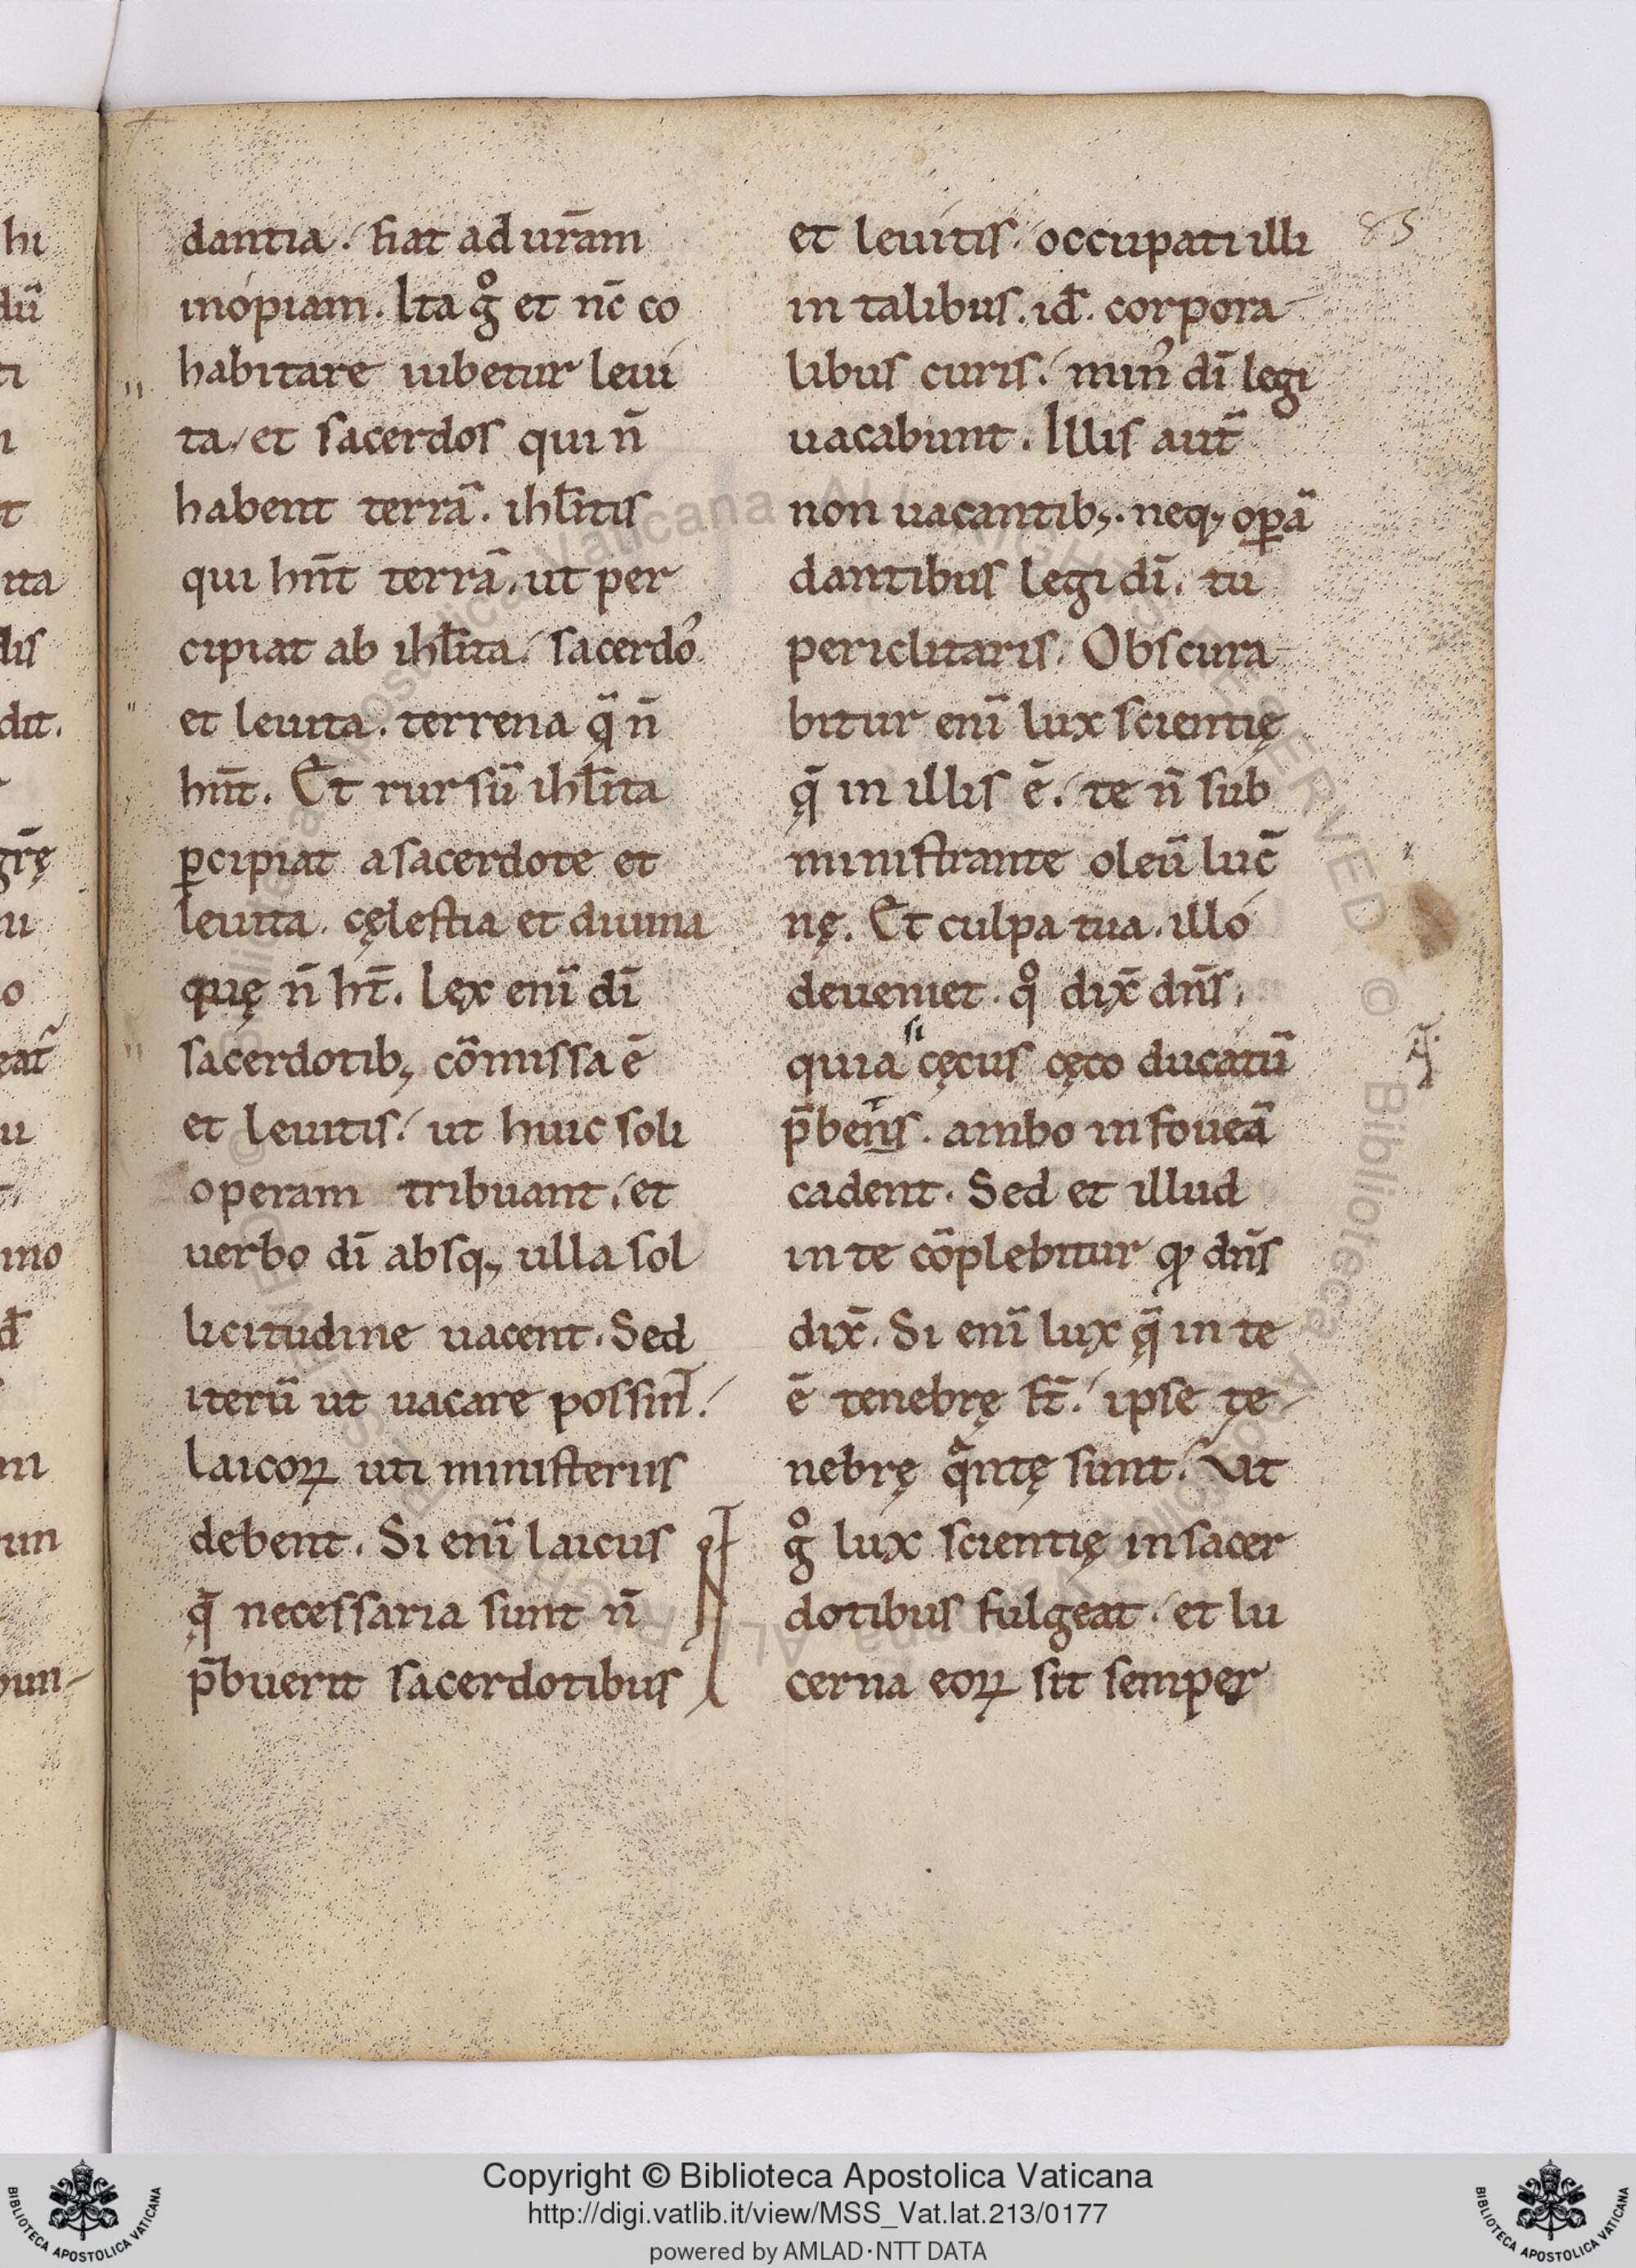 dantia. fiat ad ur̄am
inopiam. Ita gͦ et nc̄ co
habitare iubetur leui
ta, et sacerdos qui n̄
habent terrā. ihl̄itis
qui hn̄t terrā, ut per
cipiat ab ihl̄ita, sacerdo᷒
et leuita, terrena q̄ n̄
hn̄t. Et rursū ihl̄ita
ꝑcipiat a sacerdote et
leuita, cęlestia et diuina
quę n̄ ht̄. Lex enī dī
sacerdotib; cōmissa ē
et leuitis, ut huic soli
operam tribuant, et
uerbo dī absq; ulla sol
licitudine uacent. Sed
iterū ut uacare possint̄.
laicoꝝ uti ministeriis
debent. Si enī laicus
q̄ necessaria sunt n̄
p̄buerit sacerdotibus
et leuitis, occupati illi
in talibus. id̄. corpora
libus curis, min᷒ dī legi
uacabunt. Illis aut̄
non uacantib;. neq; oꝑā
dantibus legi dī, tu
periclitaris. Obscura
bitur enī lux scientię
q̄ in illis ē, te n̄ sub
ministrante oleū luc̄
nę. Et culpa tua, illo
deueniet. qͦ dix̄ dn̄s,
si
quia cęcus cęco ducatū
p̄bens. ambo in foueā
cadent. Sed et illud
in te cōplebitur ꝙ dn̄s
dix̄. Si enī lux q̄ in te
ē tenebrę st̄, ipse te
nebrę qͣntę sunt. Ut
gͦ lux scientię in sacer
dotibus fulgeat, et lu
cerna eoꝝ sit semper
85
hi
dū
ti
ita
dis
dit.
grę̄
mo
un
Copyright © Biblioteca Apostolica Vaticana
http://digi.vatlib.it/view/MSS_Vat.lat.213/0177
powered by AMLAD·NTT DATA
BIBLIOTECA APOSTOLICA VATICANA
BIBLIOTECA APOSTOLICA VATICANA